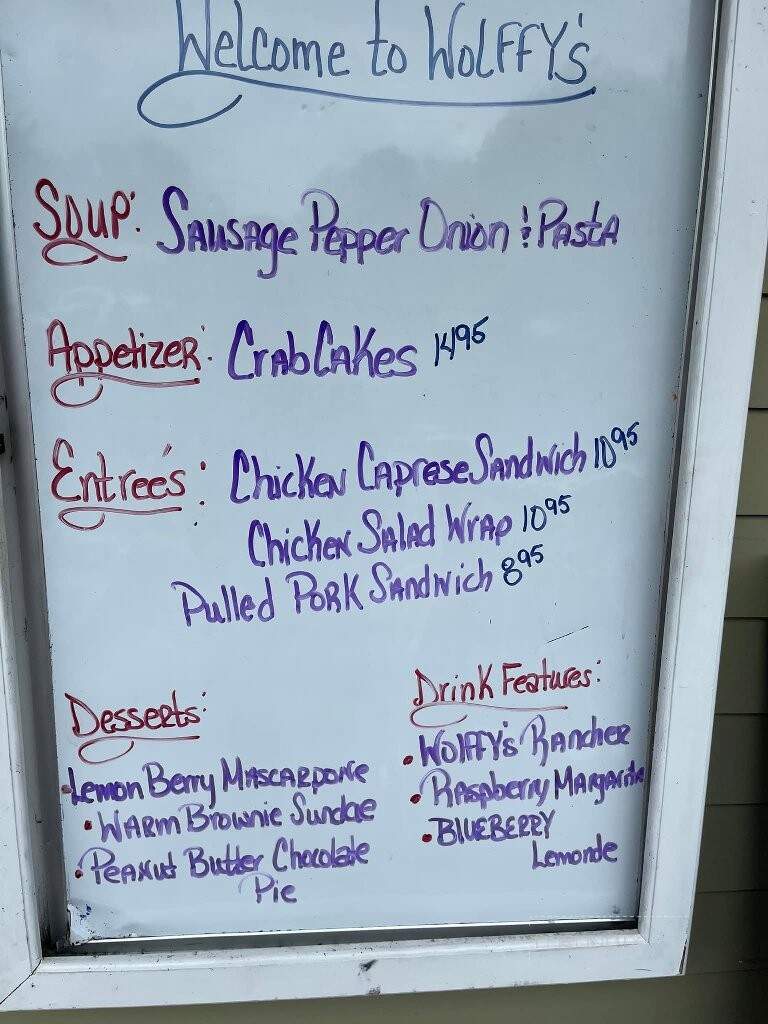 Welcome to WOLFFY's
Soup: Sausage Pepper Onion & Pasta
Appetizer: Crab Cakes 14.95
Entree's: Chicken Caprese Sandwich 10.95
Chicken Salad Wrap 10.95
Pulled Pork Sandwich 8.95
Desserts:
• Lemon Berry Mascarpone
• Warm Brownie Sundae
• Peanut Butter Chocolate
Pie
Drink Features:
• Wolffy's Rancher
• Raspberry Margarita
• BLUEBERRY
Lemonde